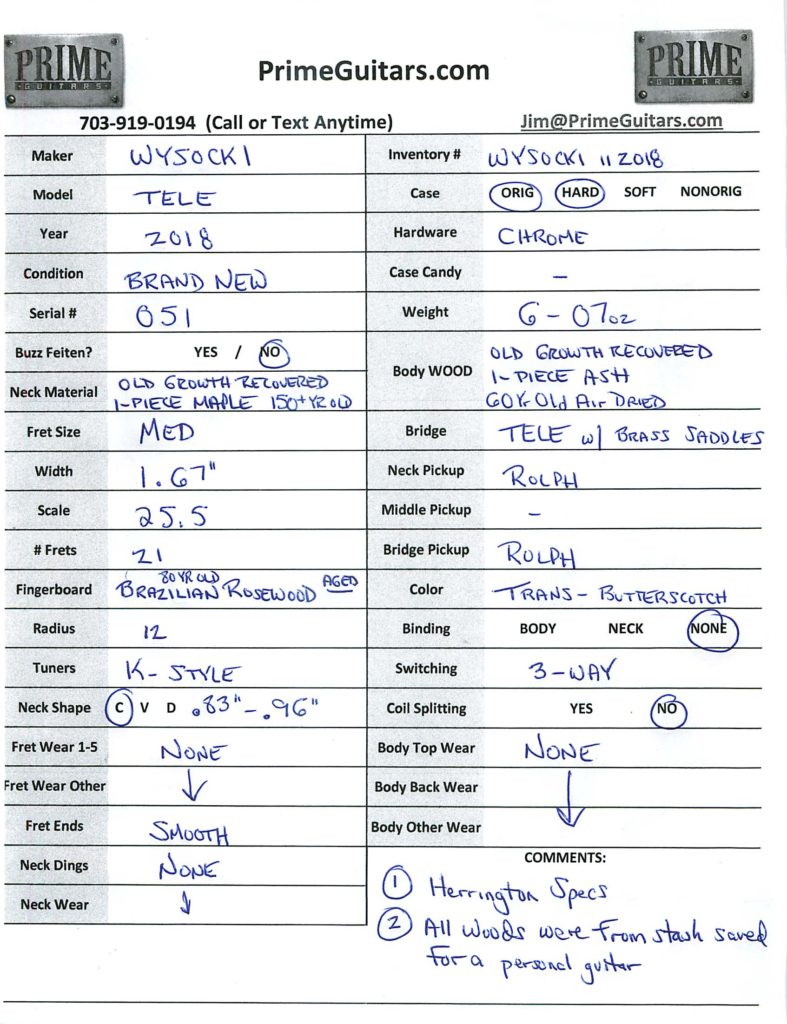 PRIME
GUITARS
PrimeGuitars.com
PRIME
GUITARS
703-919-0194 (Call or Text Anytime)
Jim@PrimeGuitars.com
Maker WYSOCKI
Model TELE
Year 2018
Condition BRAND NEW
Serial # 051
Buzz Feiten? YES / NO
Neck Material OLD GROWTH RECOVERED
1-PIECE MAPLE 150+YR OLD
Fret Size MED
Width 1.67"
Scale 25.5
# Frets 21
Fingerboard 80 YR OLD
BRAZILIAN ROSEWOOD AGED
Radius 12
Tuners K-STYLE
Neck Shape C V D .83" - .96"
Fret Wear 1-5 NONE
Fret Wear Other ↓
Fret Ends SMOOTH
Neck Dings NONE
Neck Wear ↓
Inventory # WYSOCKI 112018
Case ORIG HARD SOFT NONORIG
Hardware CHROME
Case Candy –
Weight 6 - 07oz
Body WOOD OLD GROWTH RECOVERED
1-PIECE ASH
60Yr Old Air DRIED
Bridge TELE w/ BRASS SADDLES
Neck Pickup ROLPH
Middle Pickup –
Bridge Pickup ROLPH
Color TRANS-BUTTERSCOTCH
Binding BODY NECK NONE
Switching 3-WAY
Coil Splitting YES NO
Body Top Wear NONE
Body Back Wear ↓
Body Other Wear
COMMENTS:
1 Herrington Specs
2 All Woods were from stash saved
for a personal guitar